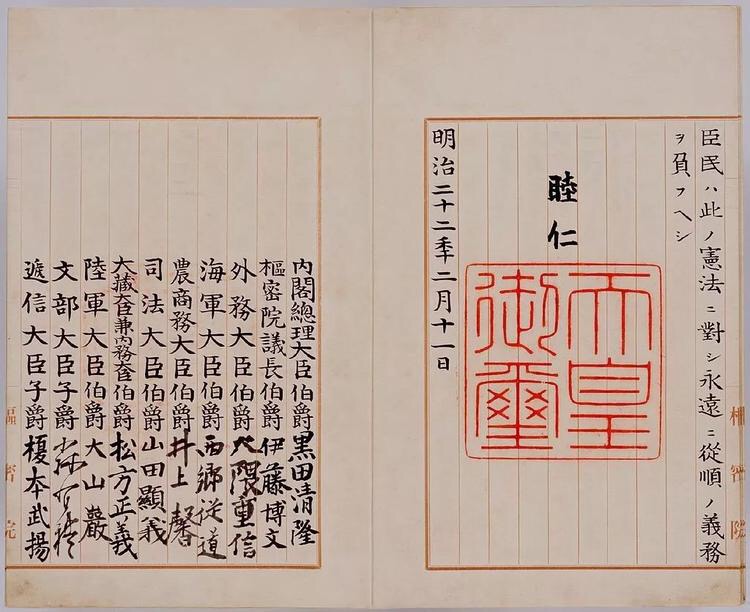 臣民ハ此ノ憲法ニ對シ永遠ニ從順ノ義務
ヲ負フヘシ
睦仁
天皇
御璽
明治二十二年二月十一日
内閣總理大臣伯爵黒田清隆
樞密院議長伯爵伊藤博文
外務大臣伯爵大隈重信
海軍大臣伯爵西郷従道
農商務大臣伯爵井上馨
司法大臣伯爵山田顯義
大藏大臣兼内務大臣伯爵松方正義
陸軍大臣伯爵大山巖
文部大臣子爵森有禮
遞信大臣子爵榎本武揚